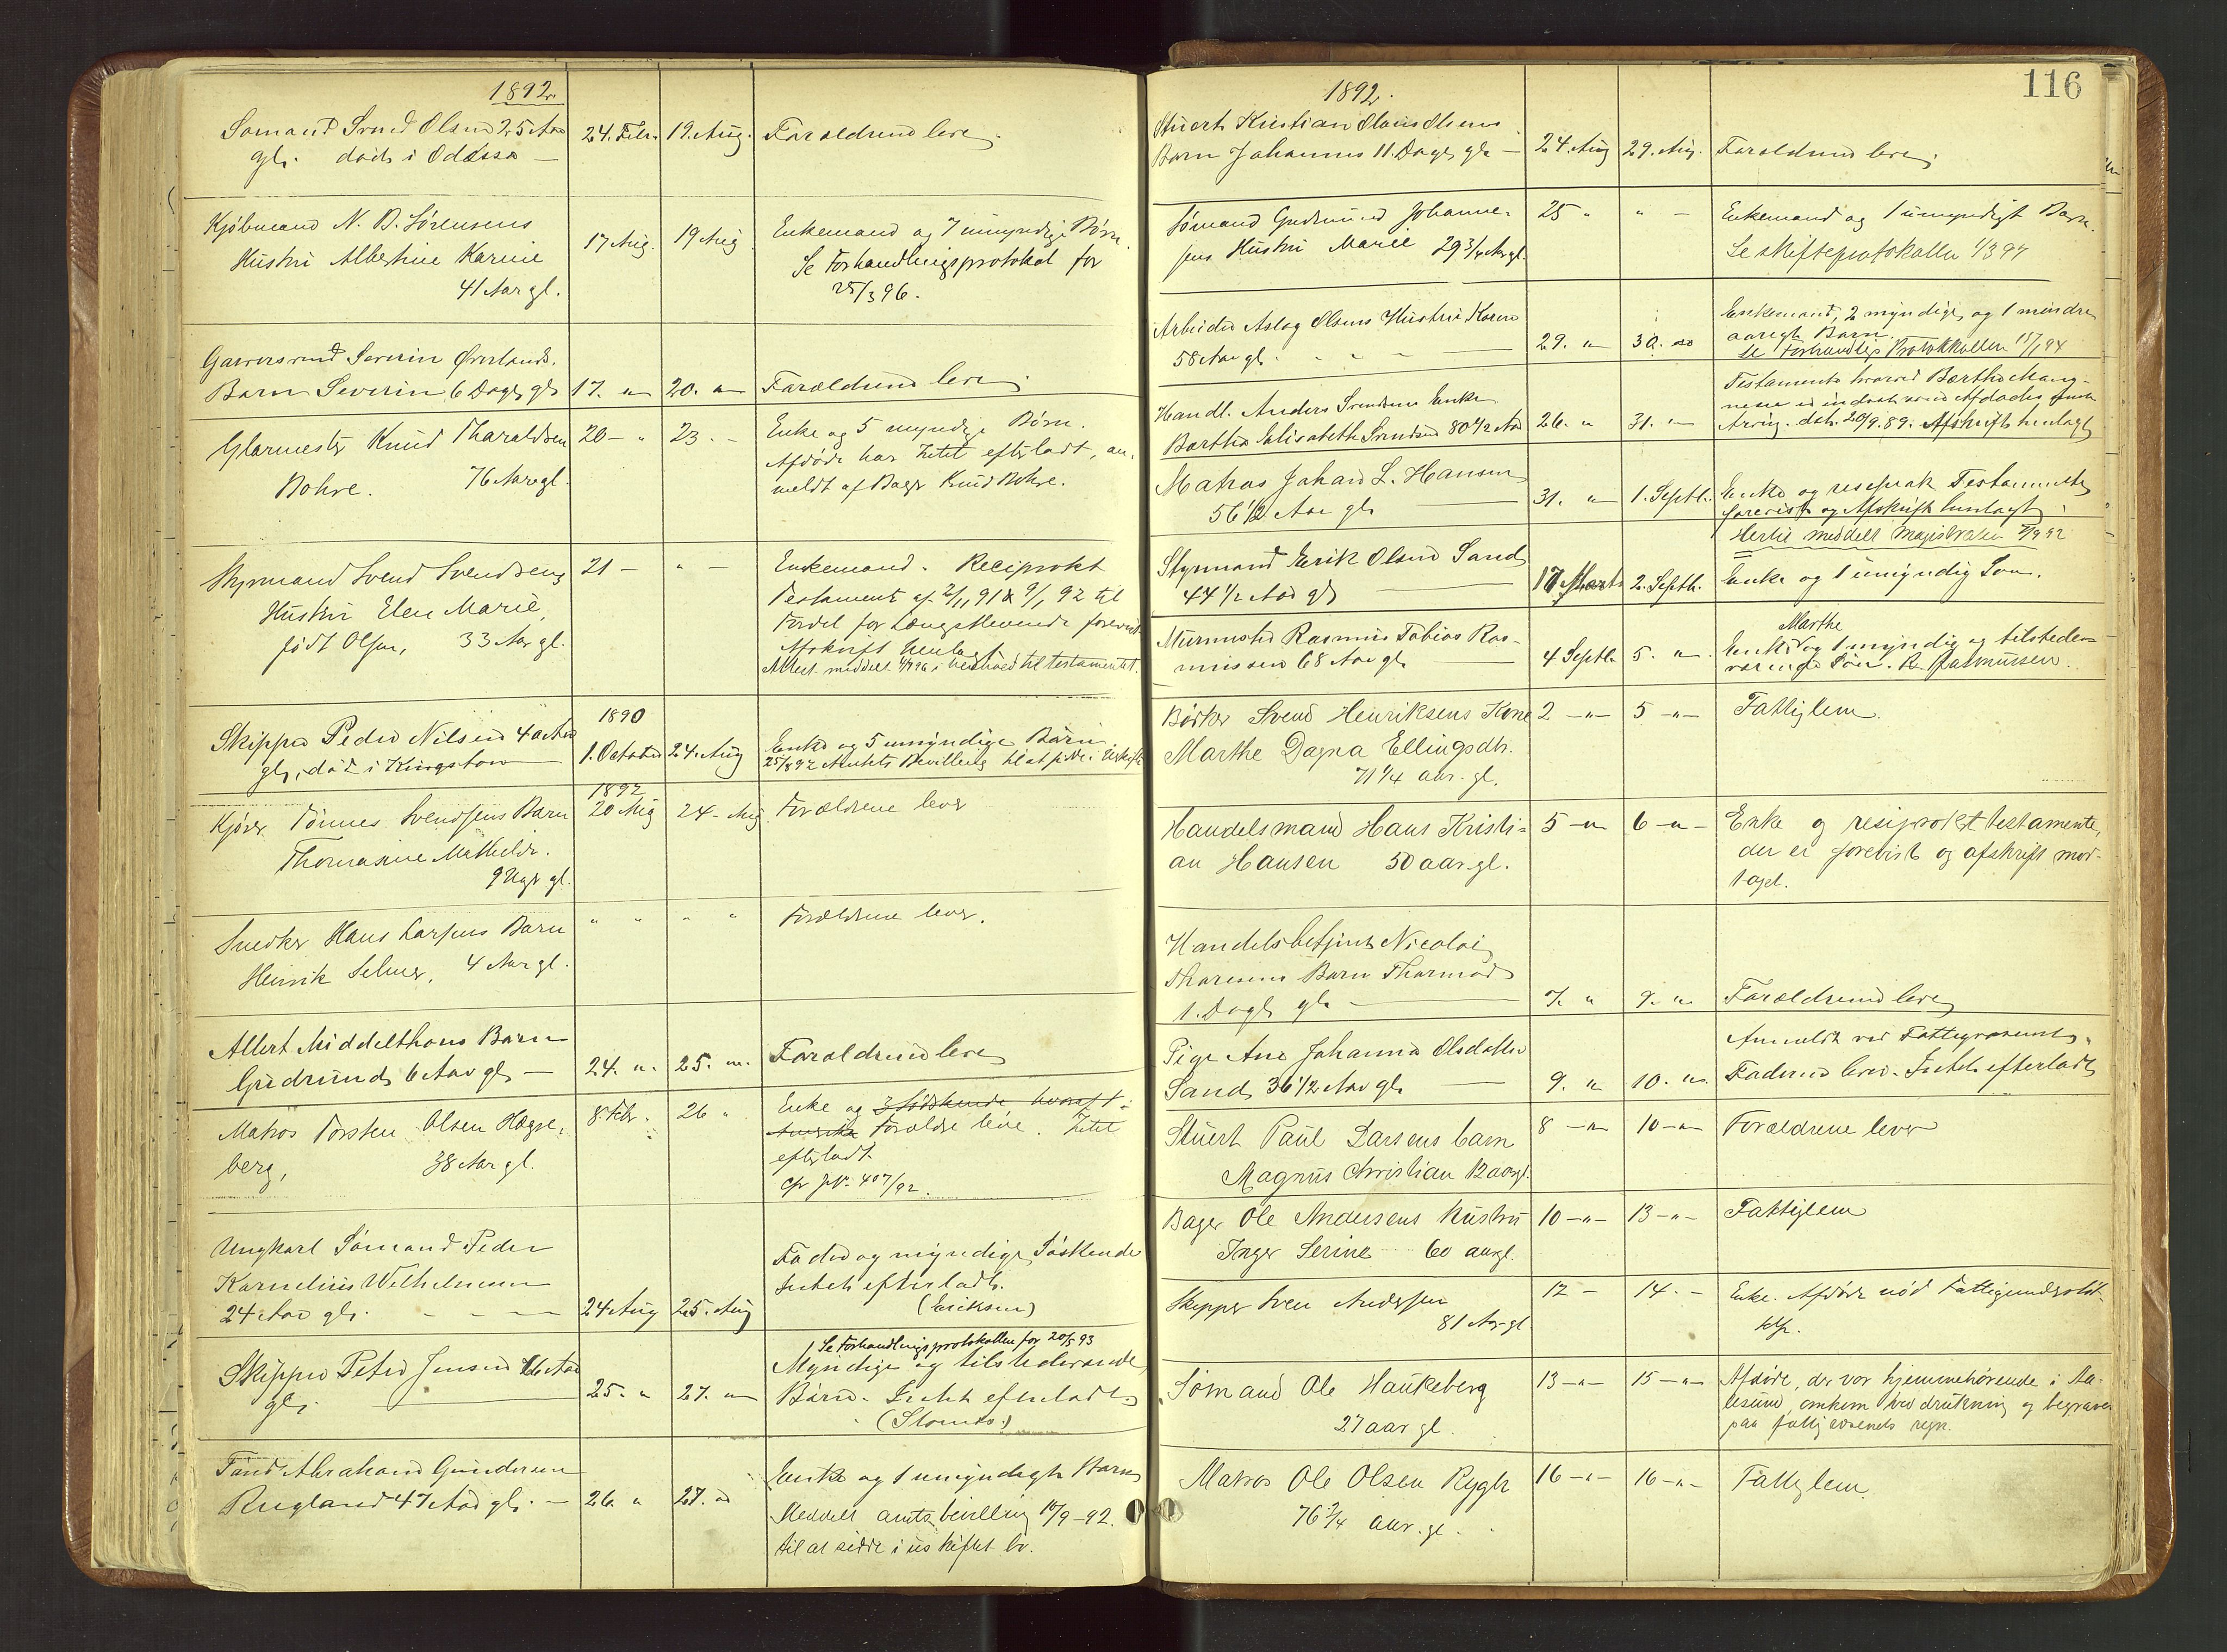 1892.
Sømand Svend Olsen 25 Aar 24. Febr. 19. Aug. Forældrene lever
gl. død i Odessa —
Kjøbmand N. B. Sørensens
Hustru Albertine Karine 17 Aug. 19 Aug Enkemand og 7 umyndige Børn.
41 Aar gl. Se Forhandlingsprotokol for
25/3 96.
Garversvend Severin Øverlands
Barn Severin 6 Dage gl 17. " 20. " Forældrene lever
Glarmester Knud Tharaldsen 20 — " 23. — Enke og 5 myndige Børn.
Bohre. 76 Aar gl. Afdøde har Intet efterladt, an-
meldt af Bager Knud Bohre.
Styrmand Svend Svendsens 21 — " — Enkemand. Reciprokt
Hustru Elen Marie, Testament af 2/11 91 & 9/1 92 til
født Olsen, 33 Aar gl. Fordel for Længstlevende forevist
Afskrift henlagt
Attest meddelt i Henhold til testamentet.
1890
Skipper Peder Nilsen 40 Aar 1. October 24. Aug Enke og 5 umyndige Børn
gl, død i Kingston 25/8 92 Amtets Bevilling til at sidde i Uskifte
1892
Kjører Tønnes Svendsens Barn 20 Aug 24. Aug Forældrene lever
Thomasine Mathilde.
9 Uger gl.
Snedker Hans Larsens Barn " " " " Forældrene lever.
Henrik Selmer, 4 Aar gl.
Albert Middelthons Barn
Gudrund 6 Aar gl — 24. " 25. " Forældrene lever
Matros Torsten Olsen Hegre- 8. Febr. 26 " Enke og 3 Sødskende hvoraf 1 i
berg, 38 Aar gl. Amerika Forældre leve. Intet
efterladt.
Cfr JN. 407/92.
Ungkarl Sømand Peder
Kornelius Wilhelmsen Fader og myndige Søskende
24 Aar gl. 24 Aug 25. Aug Intet efterladt.
(Eriksen)
Se Forhandlingsprotokollen for 20/5 93
Skipper Peter Jensen Aar Myndige og tilstedeværende
gl. 25. " 27. " Børn. Intet efterladt
Abraham Gundersen Enke og 1 umyndigt Barn
Rugland 47 Aar gl. — 26. " 27. " Meddelt amtsbevilling 10/9-92.
til at sidde i uskiftet bo.
116
1892.
Stuert Kristian Olaus Olsens
Barn Johannes 11. Dage gl — 24. Aug 29. Aug. Forældrene lever
Sømand Gudmund Johanne- 25 " " — Enkemand og 1 umyndigt Barn.
sens Hustru Marie 29 3/4 Aar gl. Se skifteprotokollen 1/3 97
Arbeider Aslag Olsens Hustru Karen Enkemand, 2 myndige og 1 mindre-
58 Aar gl. 29. " 30. " aarigt Barn
Se Forhandlings Protokollen
Handl. Anders Svendsens Enke Testamente hvorved Berthe Mag-
Berthe Elisabeth Svendsen 80 1/2 Aar 26. " 31. " Arving. dat. 20/9. 89. Afskrift henlagt
Matros Johan L. Hansen
56 1/2 Aar gl — 31. " 1. Septb. Enke og resiprok Testamente
forevist og Afskrift henlagt.
Hertil meddelt Magistraten
Styrmand Erik Olsen Sand
44 1/2 Aar gl — 17 Marts 2. Septb. Enke og 1 umyndig Søn.
Murmester Rasmus Tobias Ras- Marthe
mussen 68 Aar gl — 4 Septb. 5. " Enke og 1 myndig og tilstede-
værende Søn. R. Rasmussen.
Bødker Svend Henriksens Kone 2 — " — 5 — " — Fattiglem.
Marthe Dagna Ellingsdtr.
71 1/4 aar. gl.
Handelsmand Hans Kristi- 5 — " 6 — " — Enke og resiprokt testamente,
an Hansen 50 aar gl. der er forevist og afskrift mod-
taget.
Handelsbetjent Nicolai
Thoresens Barn Thormod
1. Dag gl — 7. " 9. " Forældrene lever
Pige Ane Johanna Olsdatter Anmeldt ved Fattigvæsenet.
Sand 36 1/2 Aar gl — 9. " 10. " Faderen lever. Intet efterladt
Stuert Paul Larsens barn 8 — " 10 — " Forældrene lever
Magnus Christian 12 aar gl.
Bager Ole Andersens hustru 10 — " — 13 — " — Fattiglem
Inger Serine 60 aar gl.
Skipper Sven Andersen 12 — 14. — Enke. Afdøde nød Fattigunderstøt-
81 Aar gl
Sømand Ole Haukeberg 13 — " — 15 — " — Afdøde, der var hjemmehørende i Aa-
27 aar gl. lesund, omkom ved drukning og begraves
paa fattigvæsenets regn.
Matros Ole Olsen Rygh 16 — " — 16 — " — Fattiglem.
76 3/4 aar. gl.